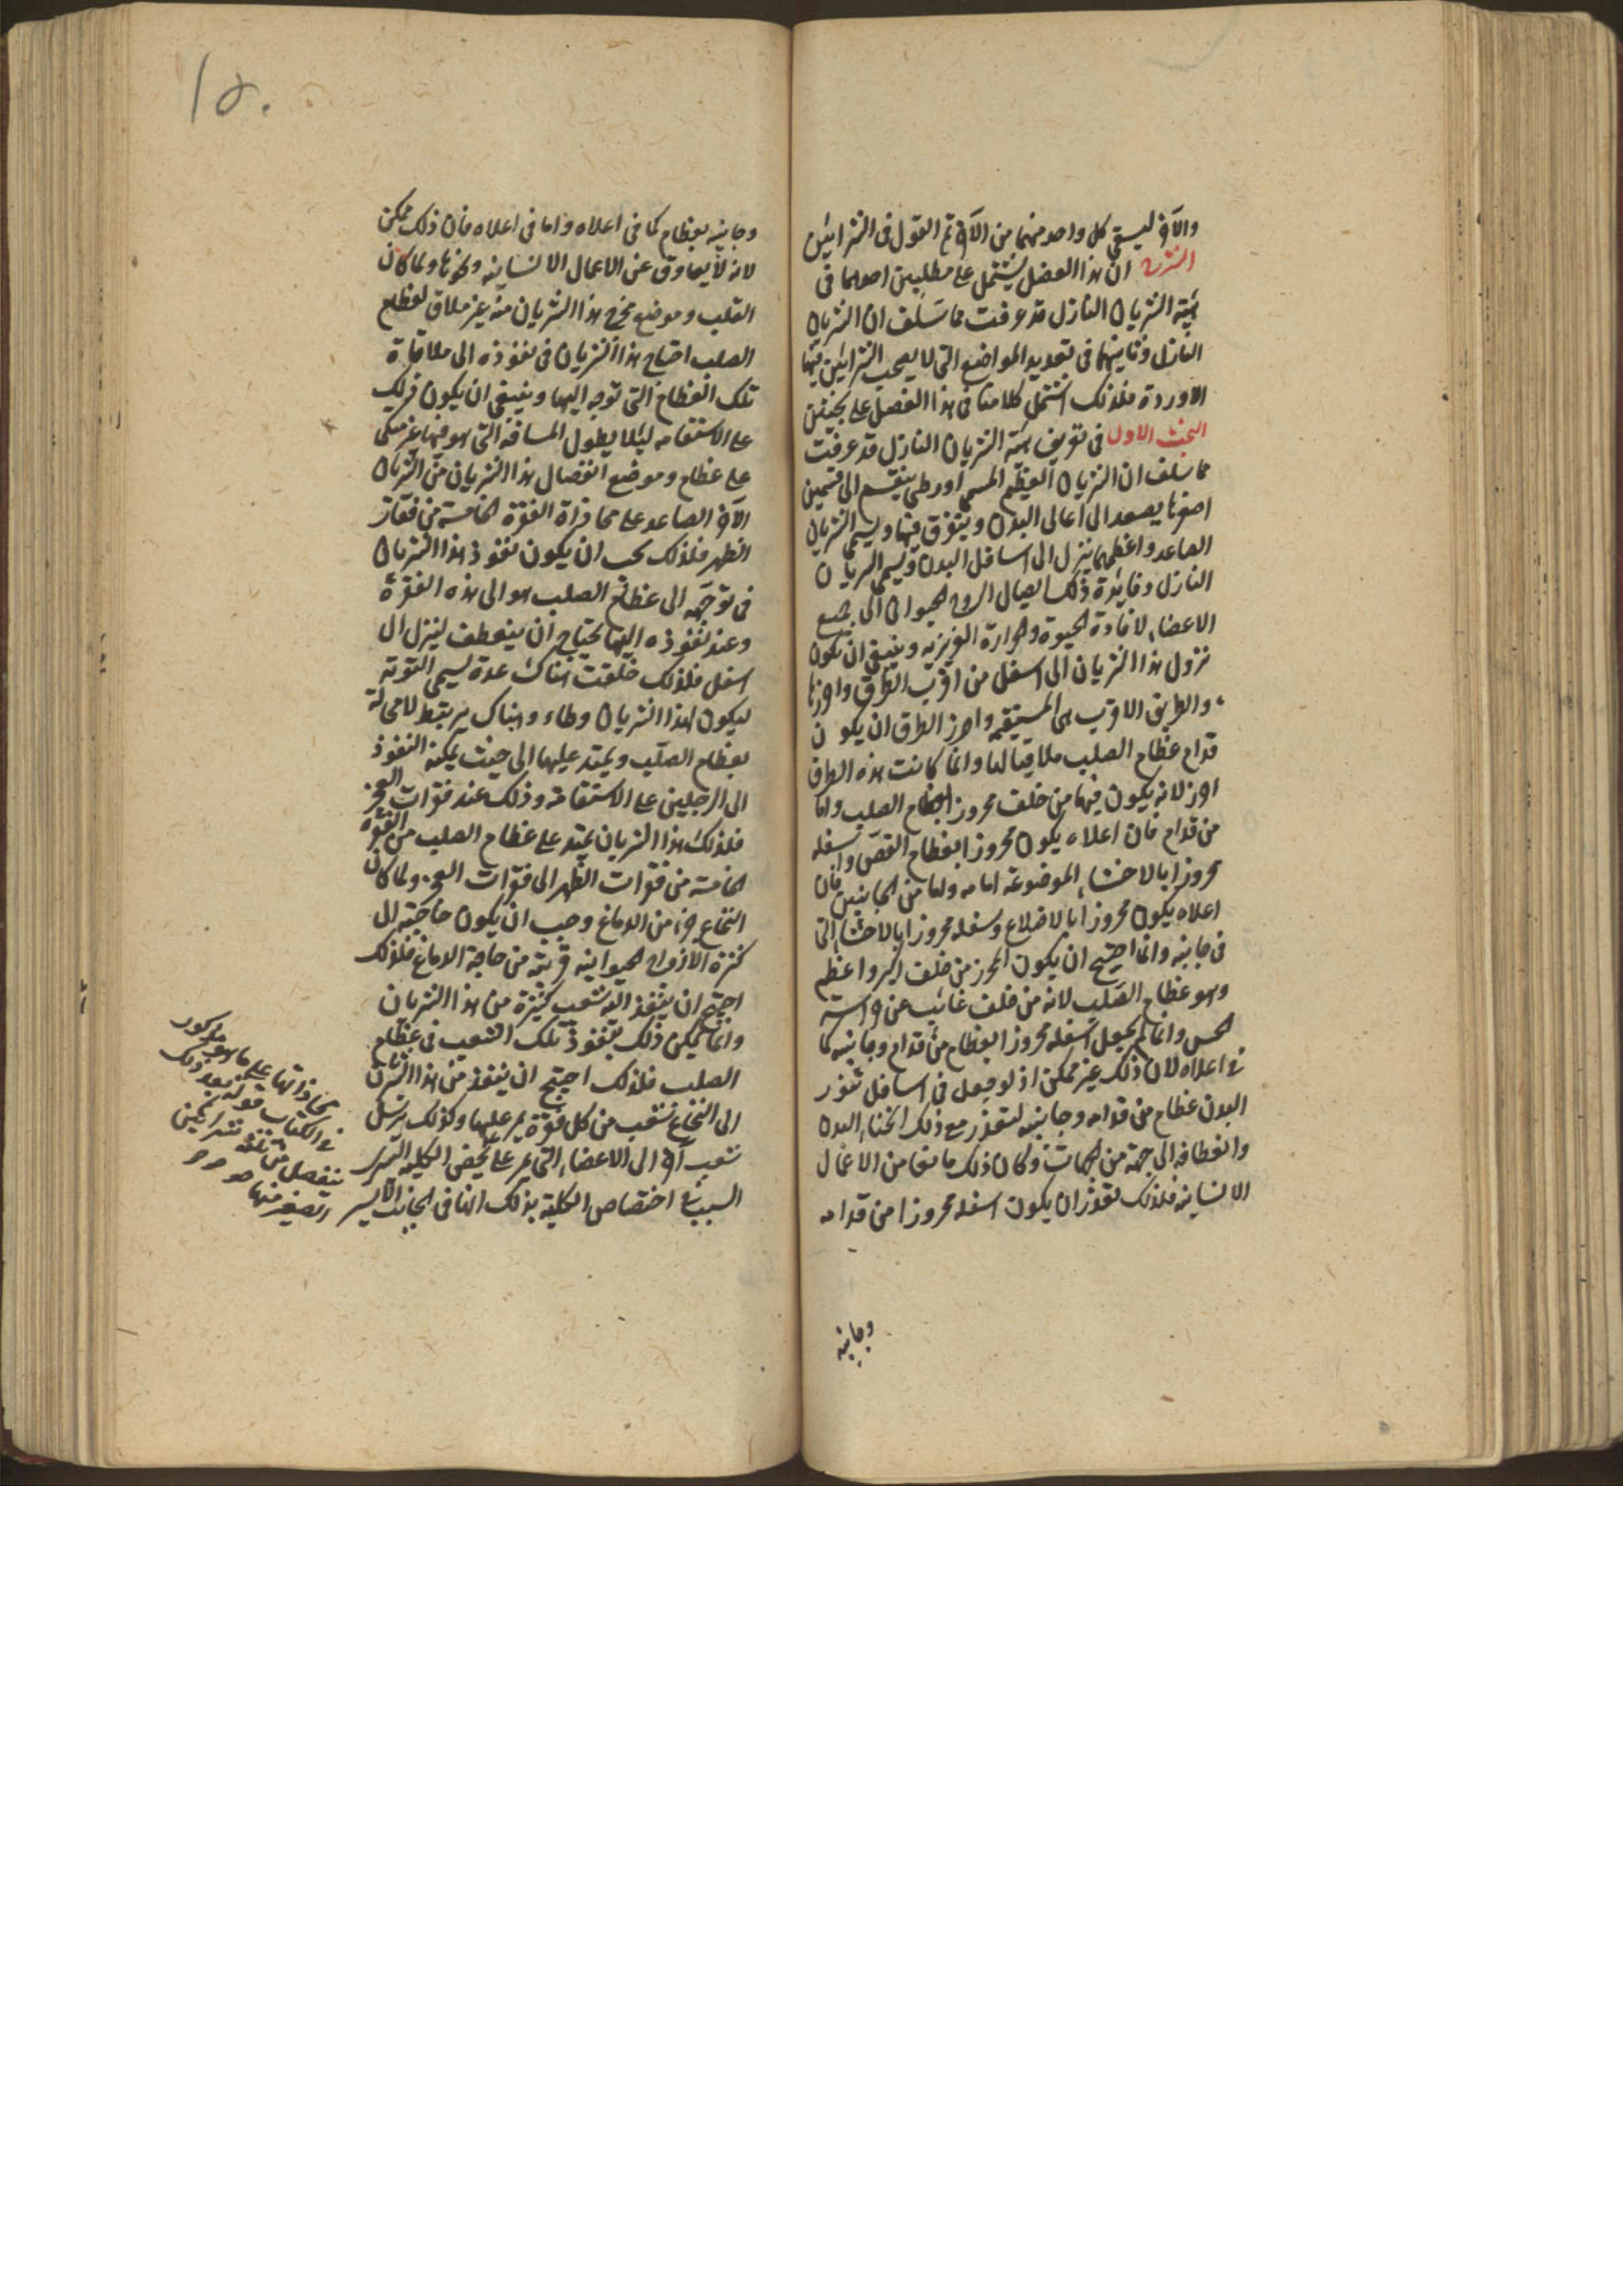 والآخر ليسقي كل واحد منهما من الآخر تم القول فى الشرايين
الشرح ان هذا الفصل يشتمل على مطلبين احدهما فى
هيئة الشريان النازل قد عرفت مما سلف ان الشريان
النازل وثانيهما فى تعديد المواضع التى لا يصحب الشرايين فيها
الاوردة فلذلك اشتمل كلامنا فى هذا الفصل على بحثين
البحث الاول فى تعريف هيئة الشريان النازل قد عرفت
مما سلف ان الشريان العظيم المسمى اورطى ينقسم الى قسمين
اصغرها يصعد الى اعالى البدن ويتفرق فيها ويسمى الشريان
الصاعد واعظمهما ينزل الى اسافل البدن ويسمى الشريان
النازل وفايدة ذلك ايصال الروح الحيوانى الى جميع
الاعضاء لافادة الحيوة والحرارة الغريزية وينبغى ان يكون
نزول هذا الشريان الى اسفل من اقرب الطرق واحرزها
والطريق الاقرب هى المستقيمة واحرز الطرق ان يكون
قدام عظام الصلب ملاقيا لها وانما كانت هذه الطرق
احرز لانه يكون فيها من خلف محروزا بعظام الصلب واما
من قدام فان اعلاه يكون محروزا بعظام القص واسفله
محروزا بالاحشاء الموضوعة امامه واما من الجانبين فان
اعلاه يكون محروزا بالاضلاع وسفله محروزا بالاحشاء التى
فى جانبيه وانما احتيج ان يكون المحرز من خلف اكبر واعظم
وهو عظام الصلب لانه من خلف غائب عن حراسة
الحس وانما لم يجعل اسفله محروزا بعظام من قدام وجانبيه كما
فى اعلاه لان ذلك غير ممكن اذ لو جعل فى اسافل تنور
البدن عظام من قدامه وجانبيه لتعذر مع ذلك انحناء البدن
وانعطافه الى جهة من الجهات وكان ذلك مانعا من الاعمال
الانسانية فلذلك تعذر ان يكون اسفله محروزا من قدامه
وجانبيه
١٥٠
وجانبيه بعظام كما فى اعلاه واما فى اعلاه فان ذلك ممكن
لانه لا يعاوق عن الاعمال الانسانية ونحوها ولما كان
القلب وموضع مخرج هذا الشريان منه غير ملاق لعظام
الصلب احتاج هذا الشريان فى نفوذه الى ملاقاة
تلك العظام التى توجه اليها وينبغى ان يكون ذلك
على الاستقامة ليلا يطول المسافة التى هو فيها غير متكى
على عظام وموضع انفصال هذا الشريان من الشريان
الآخر الصاعد على محاذاة الفقرة الخامسة من فقار
الظهر فلذلك يجب ان يكون نفوذ هذا الشريان
فى توجهه الى عظام الصلب هو الى هذه الفقرة
وعند نفوذه اليها يحتاج ان ينعطف لينزل الى
اسفل فلذلك خلقت هناك غدة تسمى التوتة
ليكون لهذا الشريان وطاء وهناك يرتبط لا محالة
بعظام الصلب ويمتد عليها الى حيث يمكنه النفوذ
الى الرجلين على الاستقامة وذلك عند فقرات العجز
فلذلك هذا الشريان يمتد على عظام الصلب من الفقرة
الخامسة من فقرات الظهر الى فقرات العجز ولما كان
النخاع جزء من الدماغ وجب ان يكون حاجته الى
كثرة الارواح الحيوانية قريبة من حاجة الدماغ فلذلك
احتيج ان ينفذ اليه شعب كثيرة من هذا الشريان
وانما يمكن ذلك بنفوذ تلك الشعب فى عظام
الصلب فلذلك احتيج ان ينفذ من هذا الشريان
الى النخاع شعب من كل فقرة يمر عليها وكذلك يرسل
شعب آخر الى الاعضاء التى يمر على الكلية اليسرى
السبب فى اختصاص الكلية بذلك انها فى الجانب الايسر
محاذاتها على ما هو مذكور
فى الكتاب قوله بعد ذلك
ينفصل من ثلثة شرايين
الصغير منها